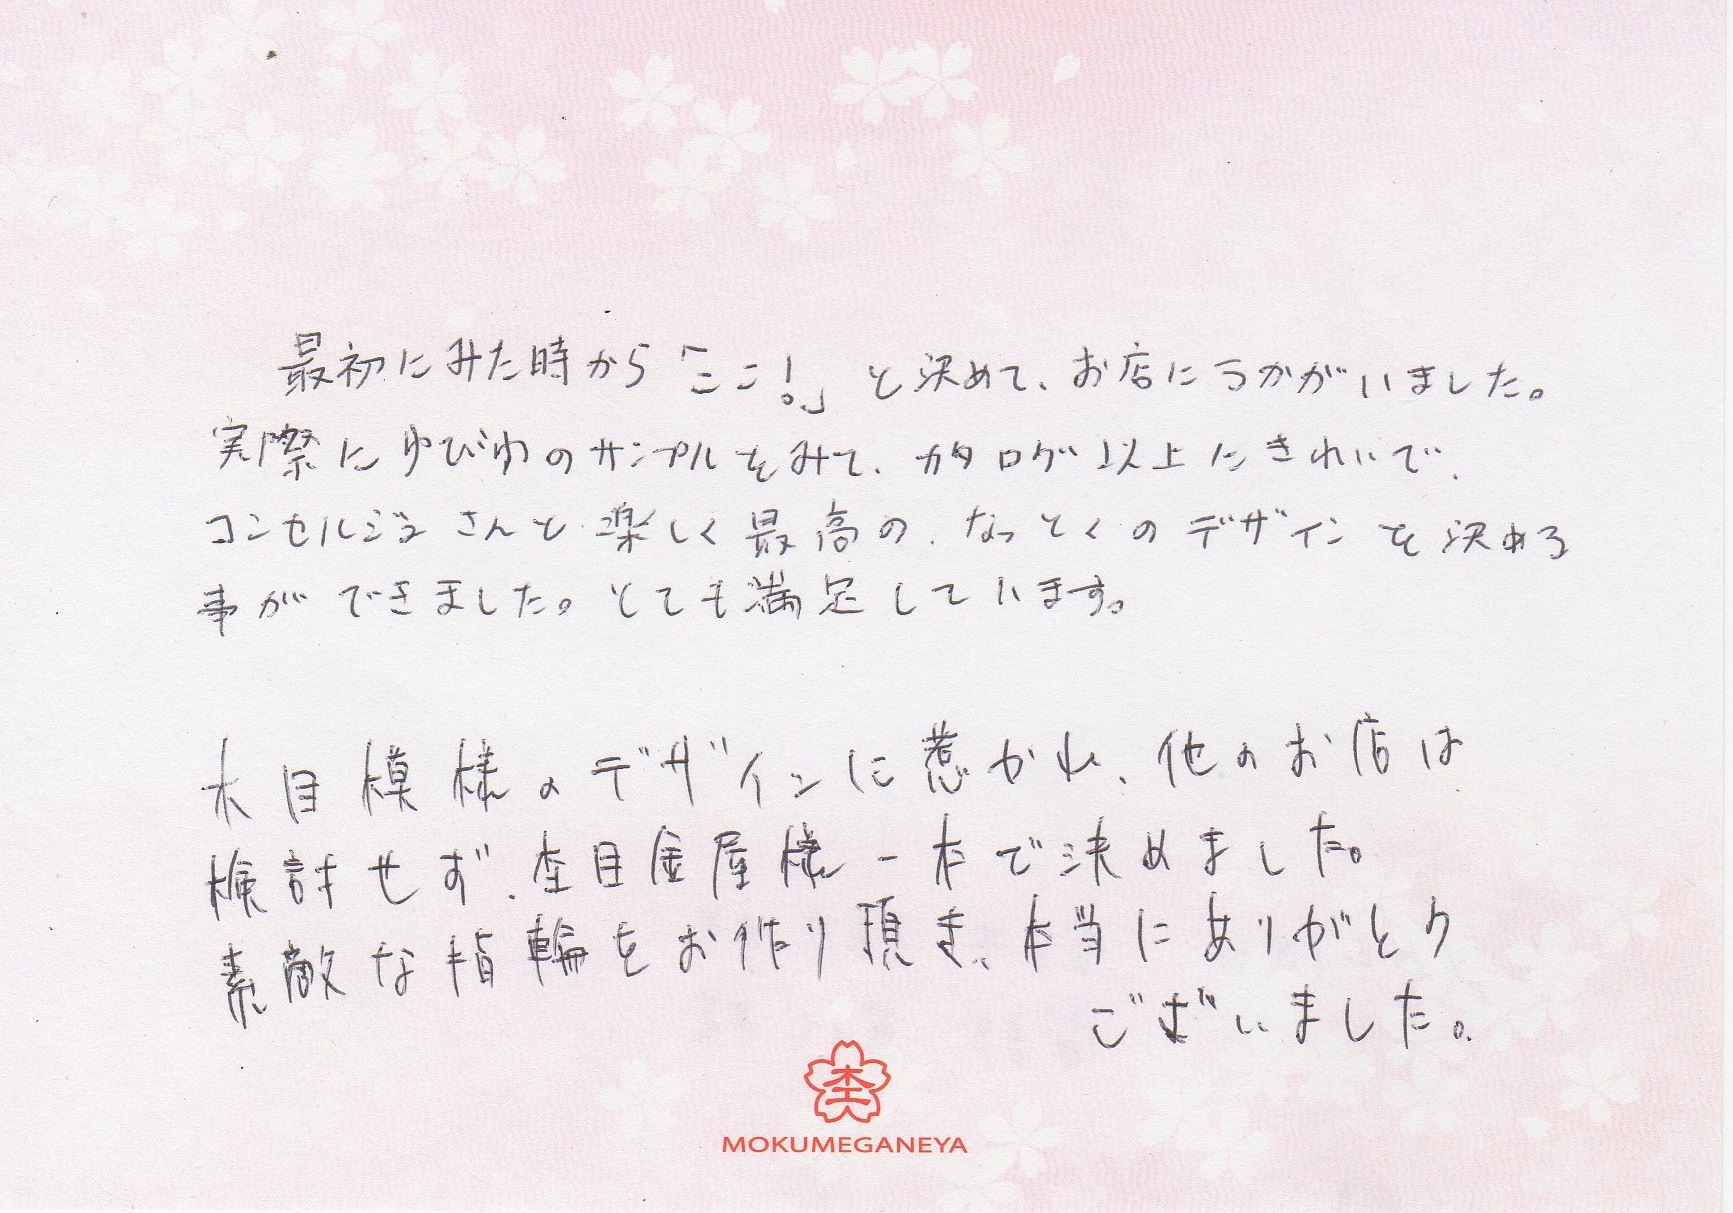 最初にみた時から「ここ!」と決めて、お店にうかがいました。
実際にゆびわのサンプルをみて、カタログ以上にきれいで、
コンセルジュさんと楽しく最高の、なっとくのデザインを決める
事ができました。とても満足しています。
木目模様のデザインに惹かれ、他のお店は
検討せず、杢目金屋様一本で決めました。
素敵な指輪をお作り頂き、本当にありがとう
ございました。
杢
MOKUMEGANEYA